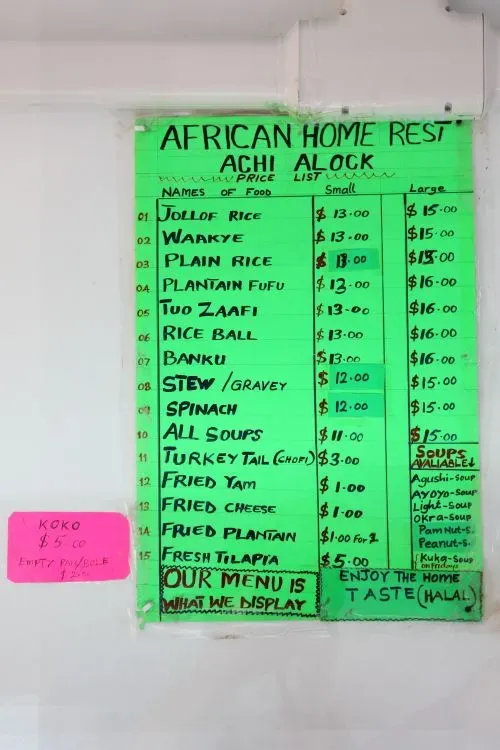 AFRICAN HOME REST
ACHI ALOCK
PRICE LIST
NAMES OF FOOD Small Large
01 JOLLOF RICE $13.00 $15.00
02 WAAKYE $13.00 $15.00
03 PLAIN RICE $13.00 $15.00
04 PLANTAIN FUFU $13.00 $16.00
05 TUO ZAAFI $13.00 $16.00
06 RICE BALL $13.00 $16.00
07 BANKU $13.00 $16.00
08 STEW/GRAVEY $12.00 $15.00
09 SPINACH $12.00 $15.00
10 ALL SOUPS $11.00 $15.00
11 TURKEY TAIL (CHOFI) $3.00
12 FRIED YAM $1.00
13 FRIED CHEESE $1.00
14 FRIED PLANTAIN $1.00 For 1
15 FRESH TILAPIA $5.00
SOUPS
AVALIABLE↓
Agushi-Soup
Ayoyo-Soup
Light-Soup
Okra-Soup
Pam Nut-S.
Peanut-S.
Kuka-Soup
on Fridays
OUR MENU IS
WHAT WE DISPLAY
ENJOY THE HOME
TASTE (HALAL)
KOKO
$5.00
EMPTY